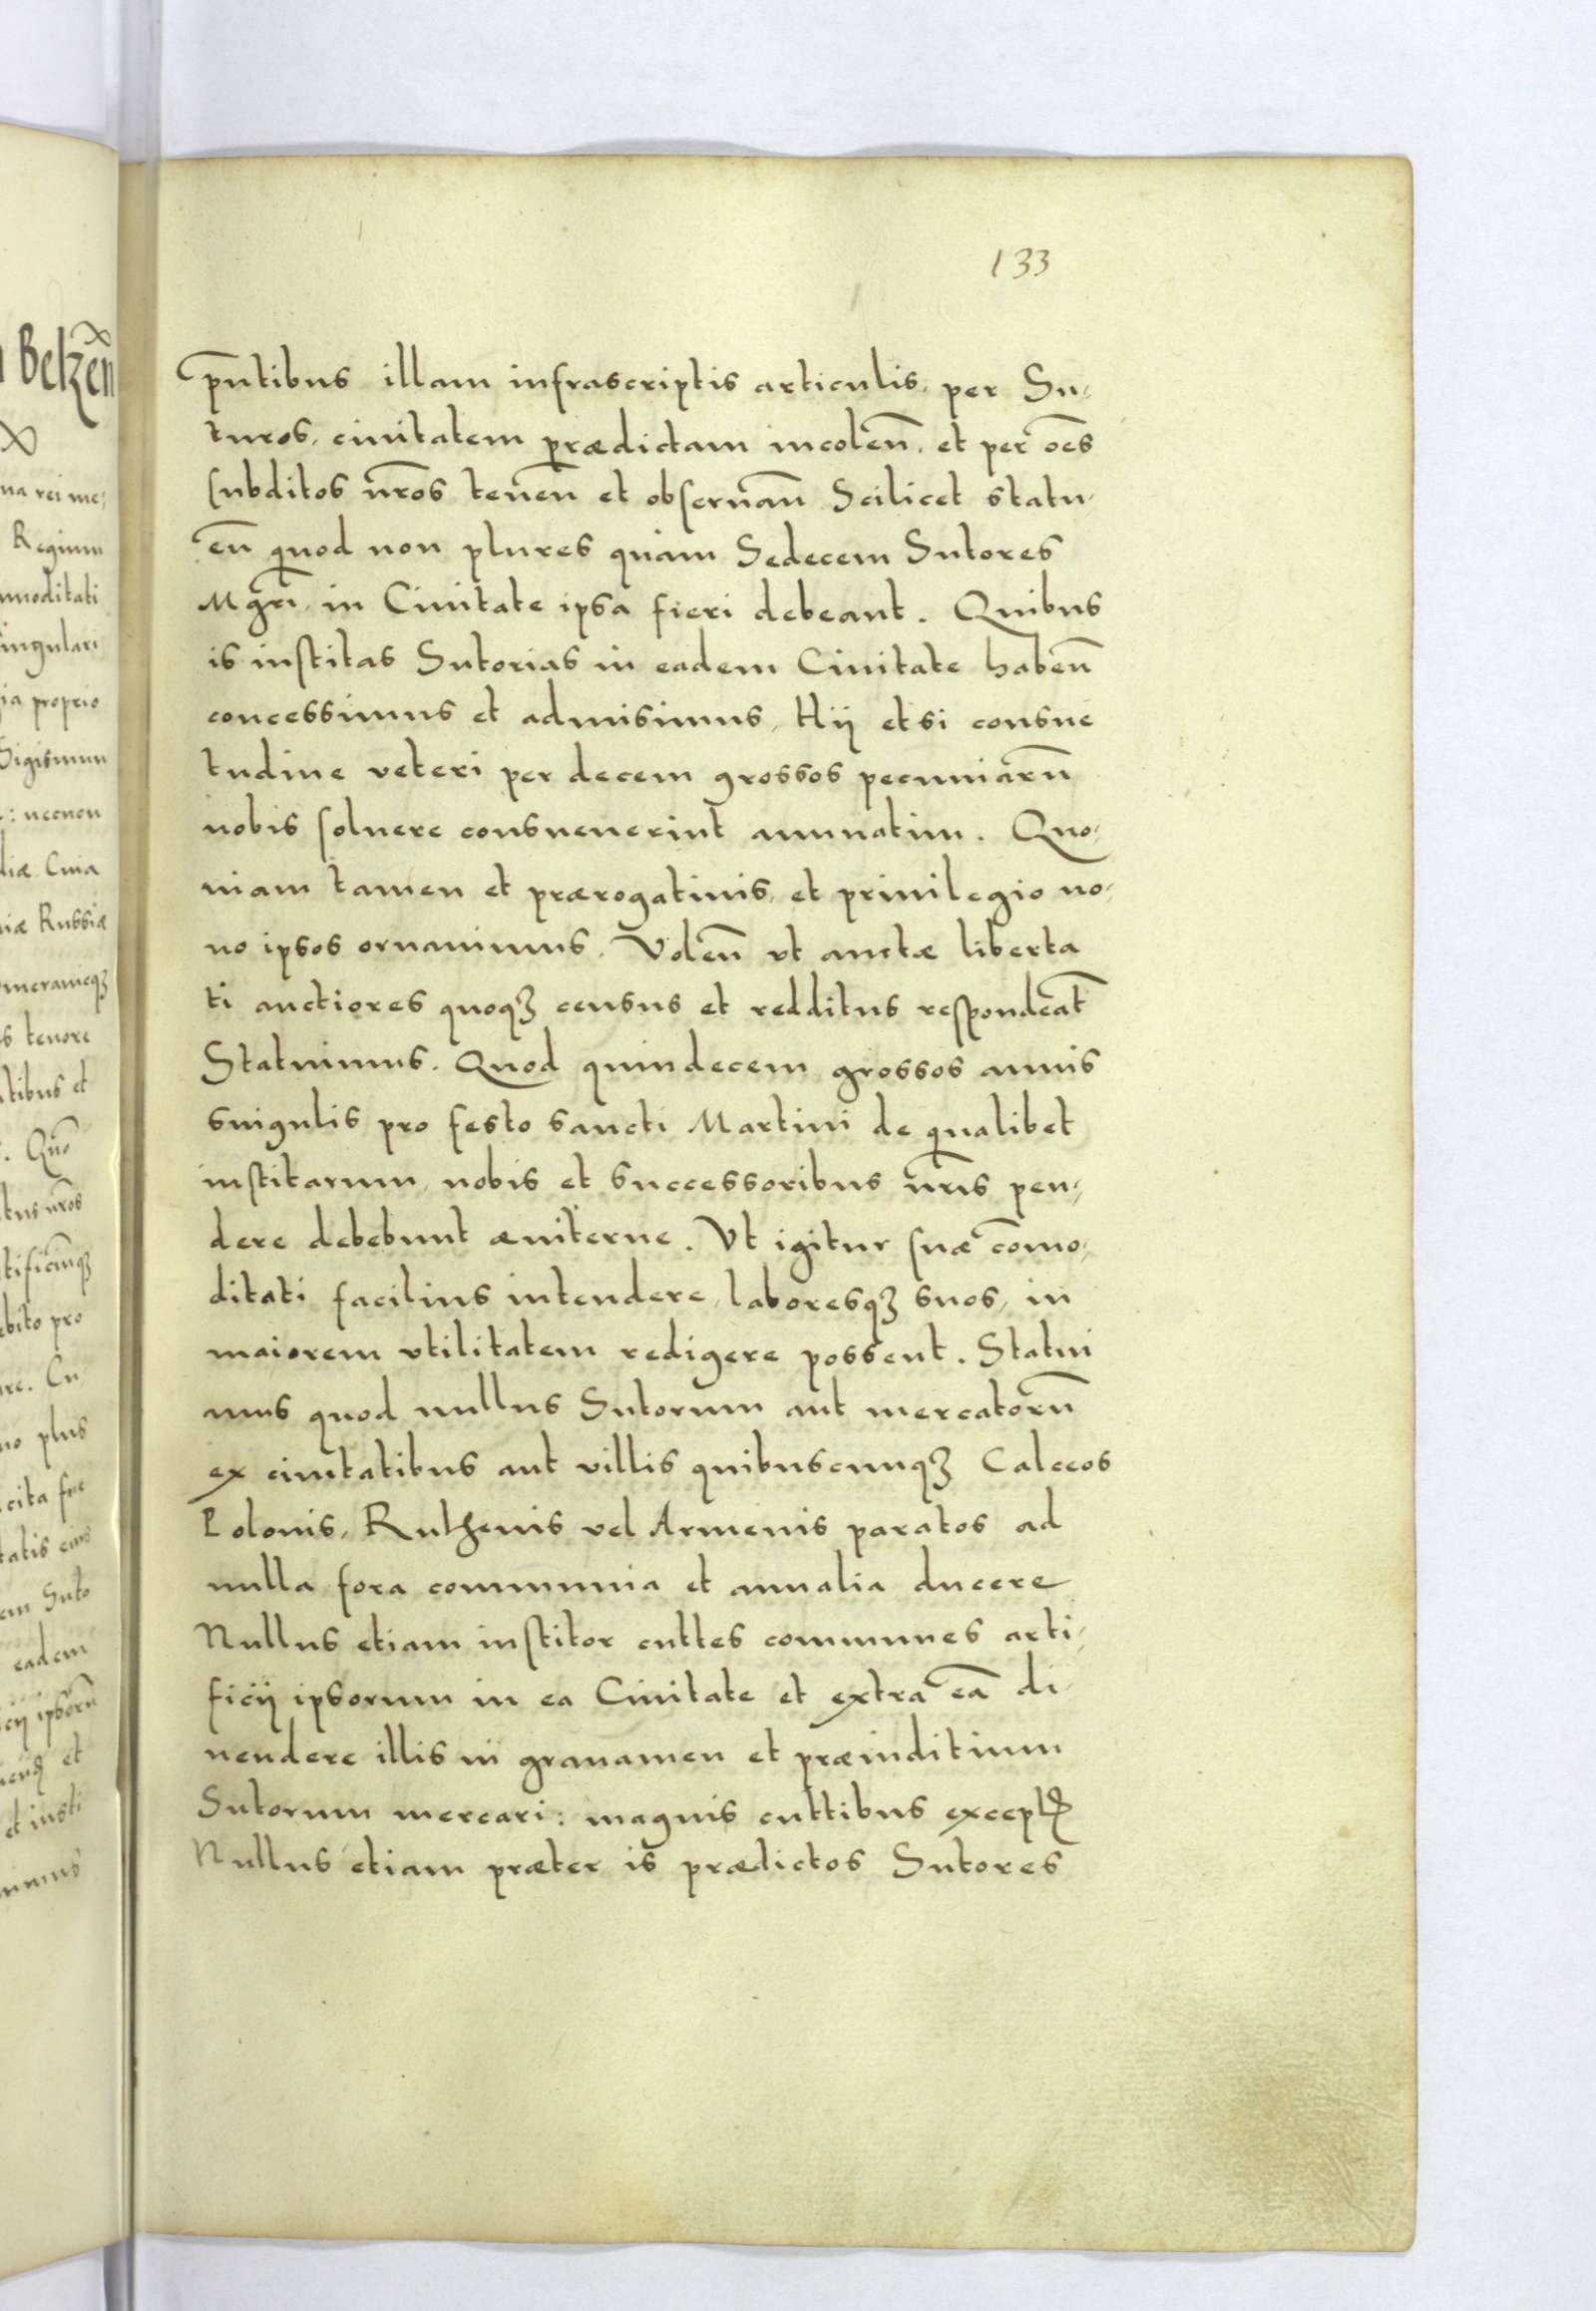 133
pñtibus illam infrascriptis articulis, per Su,
turos, ciuitatem prædictam incoleñ, et per oẽs
subditos ñros teneñ et obseruañ Scilicet statu,
eñ quod non plures quàm Sedecem Sutores
Mgr̃i, in Ciuitate ipsa fieri debeant. Quibus
is institas Sutorias in eadem Ciuitate habeñ
concessimus et admisimus, Hij etsi consue
tudine veteri per decem grossos pecuniarũ
nobis soluere consueuerint annuatim. Quo,
niam tamen et prærogatiuis, et priuilegio no,
uo ipsos ornauimus. Voleñ vt auctæ liberta
ti auctiores quoqꝫ census et redditus respondeãt
Statuimus. Quod quindecem grossos annis
singulis pro festo sancti Martini de qualibet
institarum, nobis et successoribus ñris pen,
dere debebunt æuiterne. Vt igitur suæ com̃o,
ditati facilius intendere, laboresqꝫ suos, in
maiorem vtilitatem redigere possent. Statui
mus quod nullus Sutorum aut mercatorũ
ex ciuitatibus aut villis quibuscunqꝫ Calceos
Polonis, Ruthenis vel Armenis paratos ad
nulla fora communia et annalia ducere
Nullus etiam institor cuttes communes arti,
ficij ipsorum in ea Ciuitate et extra eã di,
uendere illis in grauamen et præiuditium
Sutorum mercari: magnis cuttibus exceptꝭ
Nullus etiam præter is prædictos Sutores
Belzeñ
na rei me,
Regium
mmoditati
singulari
ia proprio
Sigismun
: necnon
liæ. Cuia
iæ Russiæ
meraniæqꝫ
s tenore
tibus et
. Quo
tus ñros
tificiũqꝫ
ebito pro
re. Cu
no plus
cita fue
tatis eius
em Suto
eadem
cij ipsorũ
et
et insti
imus